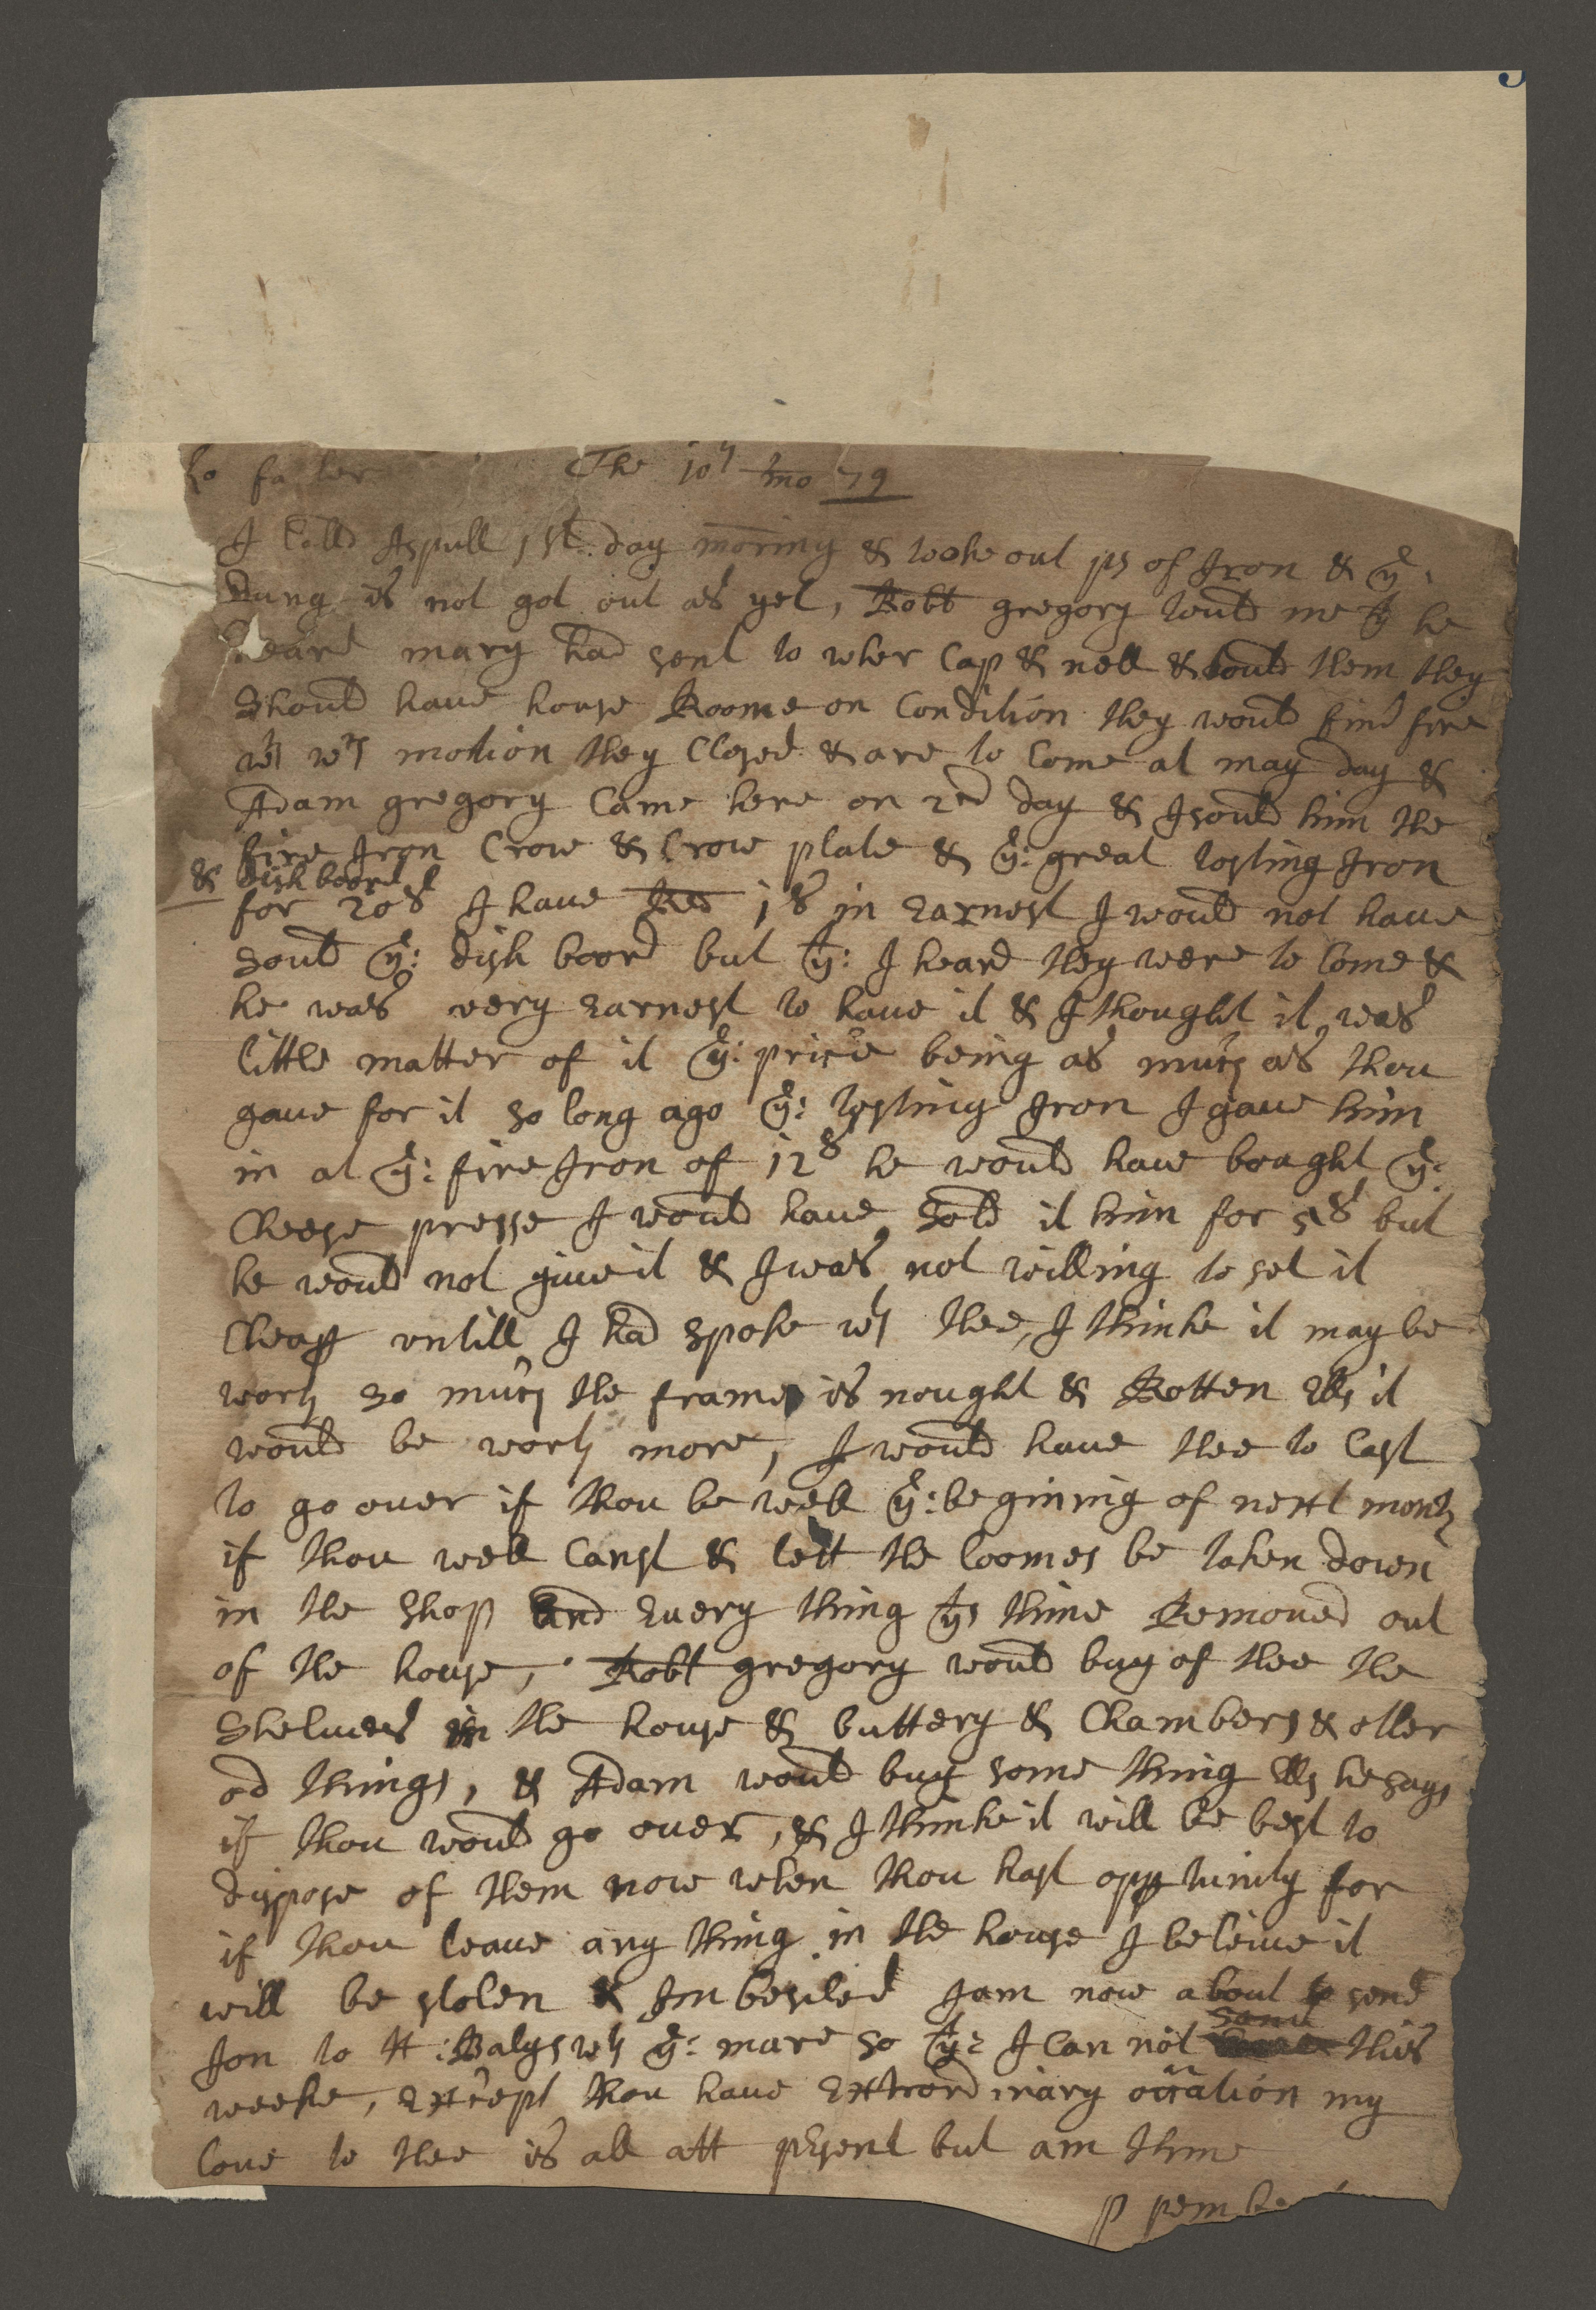 father The 10th mo 79
I Calld Aspull 1st day morning & tooke out ps of Iron & ye:
Dung is not got out as yet, Robt gregory tould me yt he
heard mary had sent to wher Cap & nell & tould them they
Should haue house Roome on Condition they would find fire
wth wch motion they Closed & are to Come at may day &
Adam gregory Came here on 2nd day & I sould him the
fire Iron Crow & Crow plate & ye: great tosting Iron
& dish board
for 20s I haue Red 1s in Earnest I would not haue
sould ye: dish boord but yt: I heard they were to Come &
he was very Earnest to haue it & I thought it was
little matter of it ye: price being as much as thou
gaue for it so long ago ye: tosting Iron I gaue him
in at ye: fire Iron of 12s he would haue bought ye:
Cheese presse I would haue Sold it him for 5s but
he would not giue it & I was not willing to sel it
Cheap vntill I had spoke wth thee, I thinke it may be
worth so much the frame is nought & Rotten Els it
would be worth more, I would haue thee to Cast
to go ouer if thou be well ye: begining of next month
if thou well Canst & lett the loomes be taken down
in the Shop and Euery thing yts thine Remoued out
of the house, Robt gregory would buy of thee the
Shelues in the house & buttery & Chambers & other
od things, & Adam would buy some thing Els he says
if thou would go ouer, & I thinke it will be best to
dispose of them now when thou hast opptunity for
if thou leaue any thing in the house I beleiue it
will be stolen & Imbesiled I am now about to send
Jon to H: Balys wth ye: mare so yt: I Can not Sand this
weeke, Except thou haue Extraordinary occation my
loue to thee is all att psent but am thine
P pembe